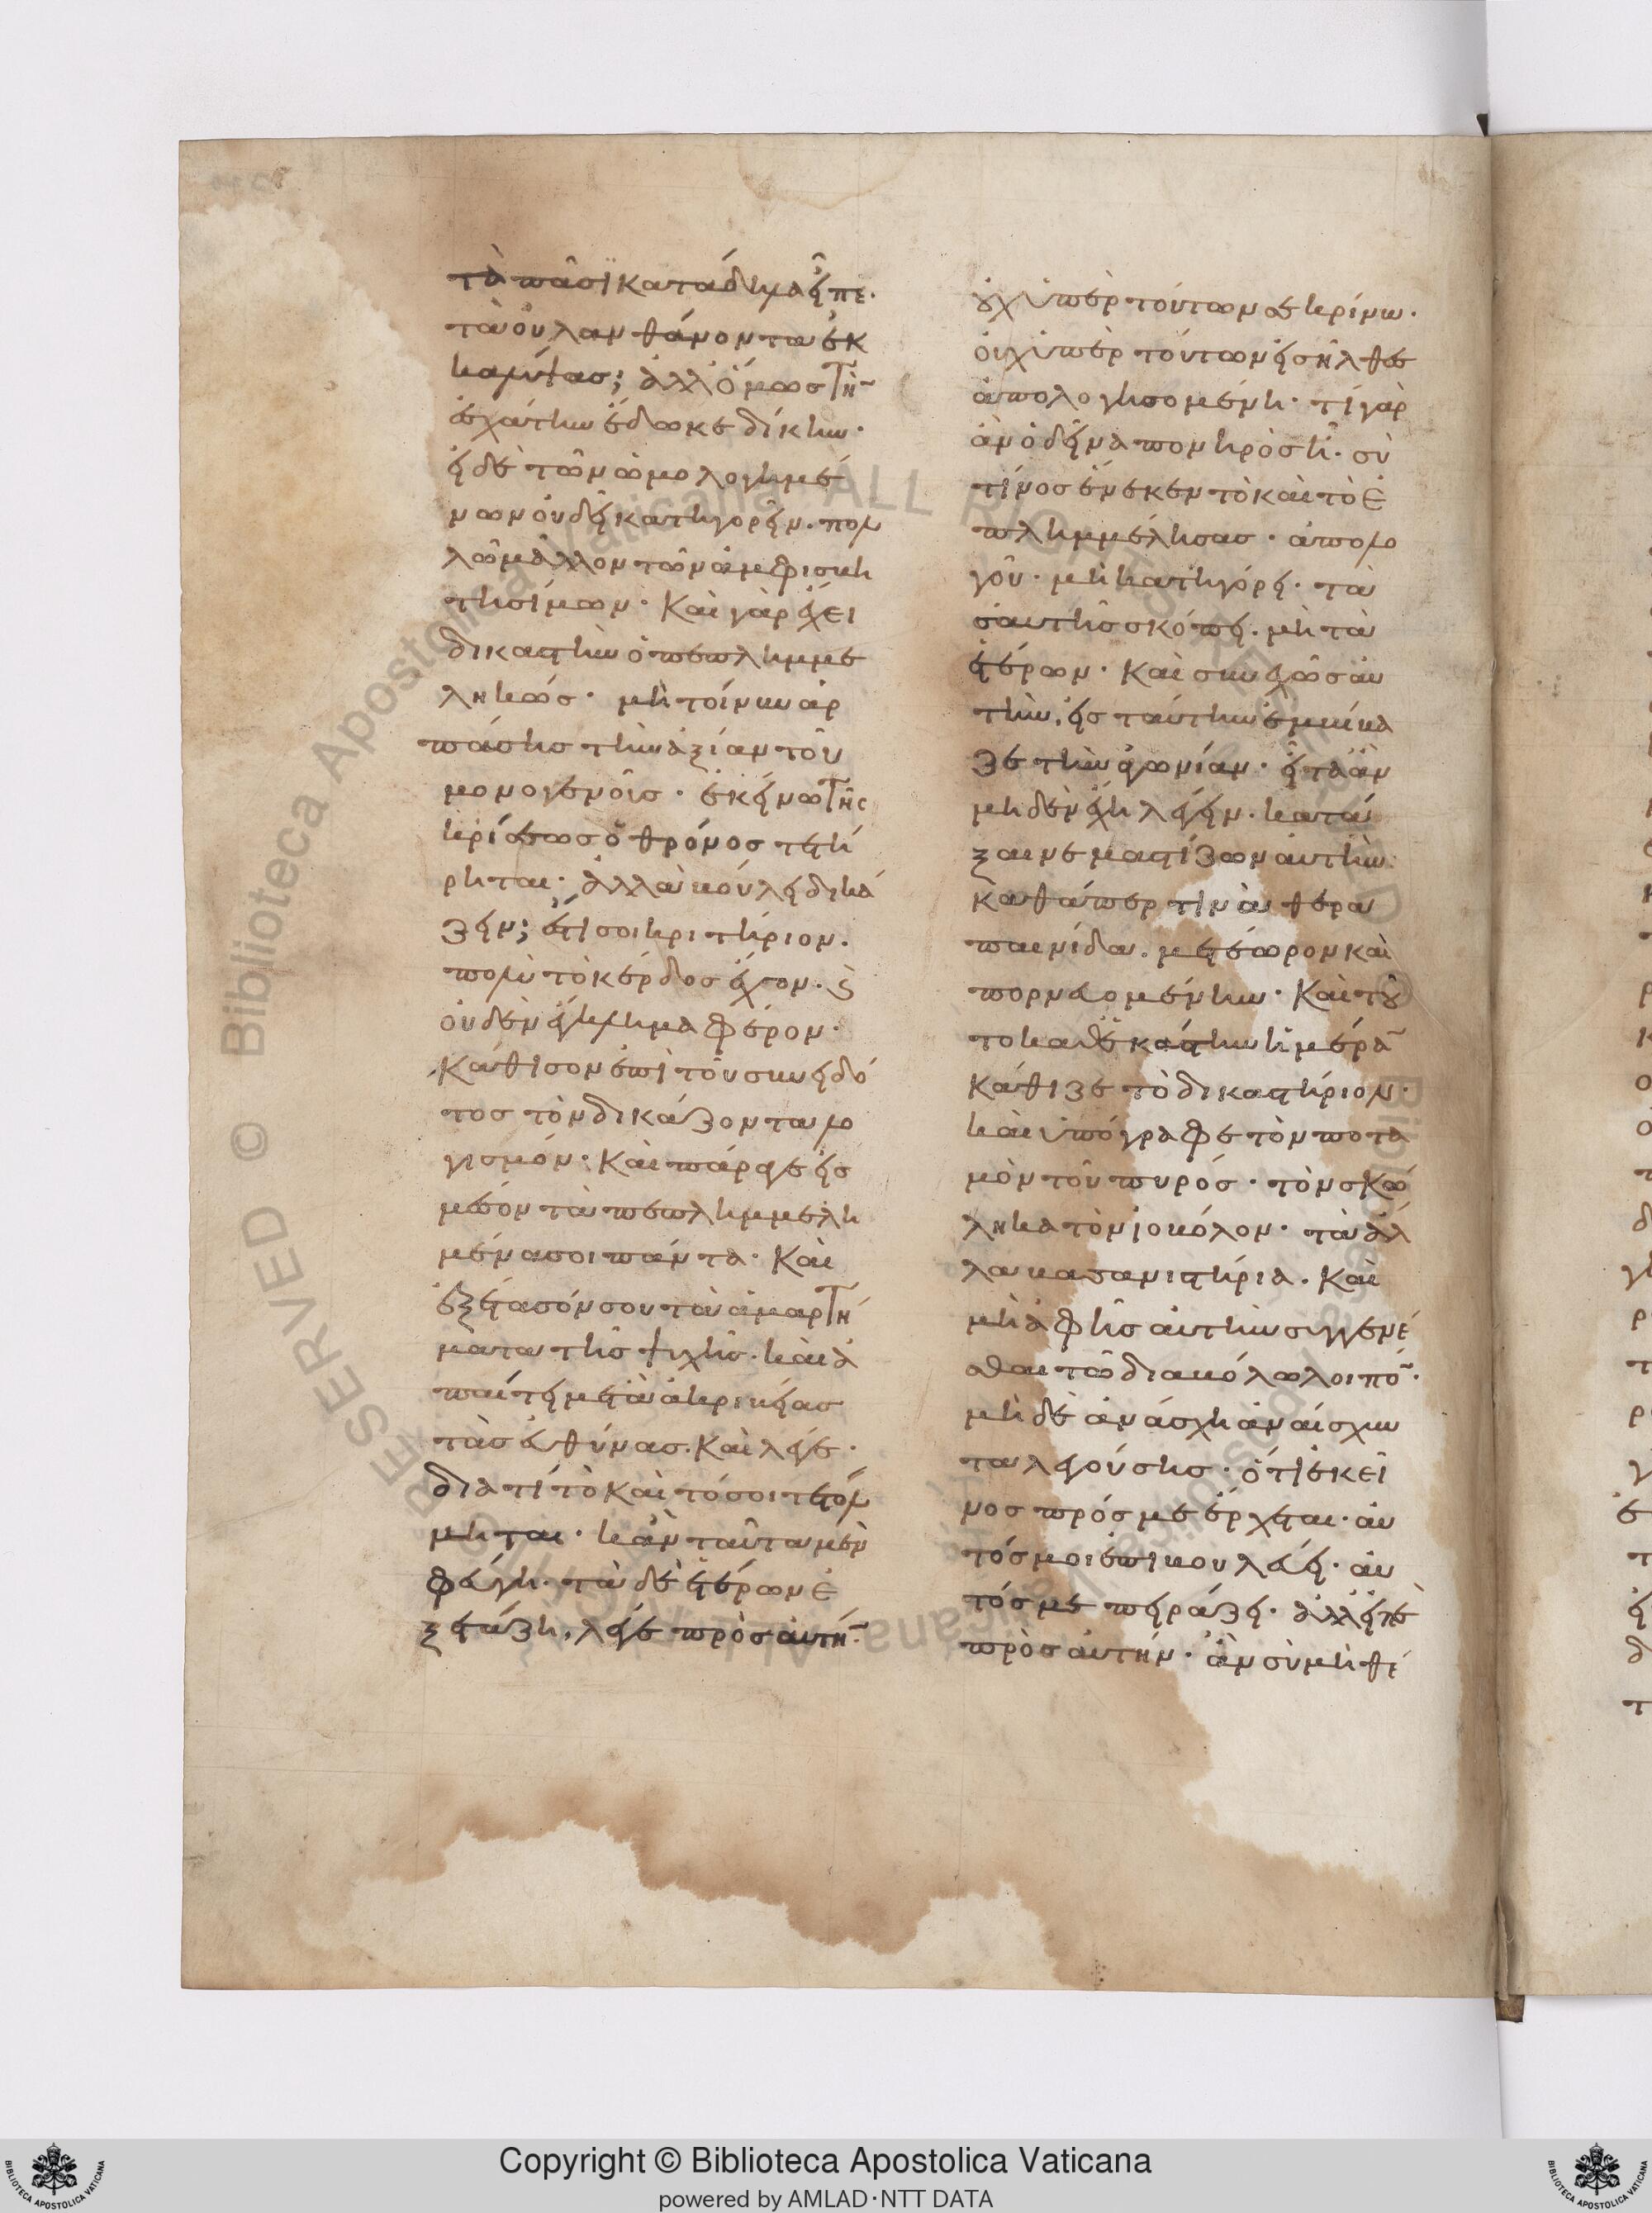 τὰ πᾶσι κατάδηλα εἶπε·
τὰ οὐ λανθάνοντα ἐκ
καλύψας; ἀλλ' ὅμως τὴν
ἐσχάτην ἔδωκε δίκην·
εἰ δὲ τῶν ὡμολογημέ
νων οὐ δεῖ κατηγορεῖν. πολ
λῶ μᾶλλον τῶν ἀμφισβη
τησίμων· Καὶ γὰρ ἔχει
δικαστὴν ὁ πεπλημμε
ληκώς· μὴ τοίνυν ἁρ
πάσης τὴν ἀξίαν τοῦ
μονογενοῦς· ἐκείνω τῆς
κρίσεως ὁ θρόνος τετή
ρηται· Ἀλλὰ βούλει δικά
ζειν; ἔστι σοι κριτήριον.
πολὺ τὸ κέρδος ἔχον. καὶ
οὐδὲν ἔγκλημα φέρον·
Κάθισον ἐπὶ τοῦ συνειδό
τος τὸν δικάζοντα λο
γισμόν· Καὶ πάραγε εἰς
μέσον τὰ πεπλημμελη
μένα σοι πάντα· Καὶ
ἐξέτασόν σου τὰ ἁμαρτή
ματα τῆς ψυχῆς· καὶ ἀ
παίτει μετὰ ἀκριβείας
τὰς εὐθύνας. Καὶ λέγε·
διατί τὸ καὶ τό σοι τετόλ
μηται· κἂν ταῦτα μὲν
φεύγη· τὰ δὲ ἑτέρων ἐ
ξετάζη, λέγε πρὸς αὐτήν·
οὐχ ὑπὲρ τούτων σε κρίνω·
οὐχ ὑπὲρ τούτων εἰσῆλθες
ἀπολογησομένη· τί γὰρ
ἂν ὁ δεῖνα πονηρὸς ἦ· σὺ
τίνος ἕνεκεν τὸ καὶ τὸ ἐ
πλημμέλησας· ἀπολο
γοῦ· μὴ κατηγόρει· τὰ
σαυτῆς σκόπει. μὴ τὰ
ἑτέρων· Καὶ συνεχῶς αὐ
τὴν, εἰς ταύτην ἐμβίβα
ζε τὴν ἀγωνίαν· εἶτα ἂν
μηδὲν ἔχη λέγειν. κατά
ξαινε μαστίζων αὐτὴν
καθάπερ τινὰ θερα
παινίδα. μετέωρον καὶ
πορνευομένην· Καὶ τοῦ
το καθ' ἑκάστην ἡμέραν
Κάθιζε τὸ δικαστήριον·
καὶ ὑπόγραφε τὸν ποτα
μὸν τοῦ πυρός· τὸν σκώ
ληκα τὸν ἰοβόλον· τὰ ἄλ
λα βασανιστήρια. Καὶ
μὴ ἀφῆς αὐτὴν συγγενέ
σθαι τῶ διαβόλω λοιπόν·
μὴ δὲ ἀνάσχη ἀναίσχυν
τα λεγούσης· ὅτι ἐκεῖ
νος πρός με ἔρχεται· αὐ
τός μοι ἐπιβουλεύει· αὐ
τός με πειράζει· ἀλλ' εἰπὲ
πρὸς αὐτήν· ἂν σὺ μὴ θέ